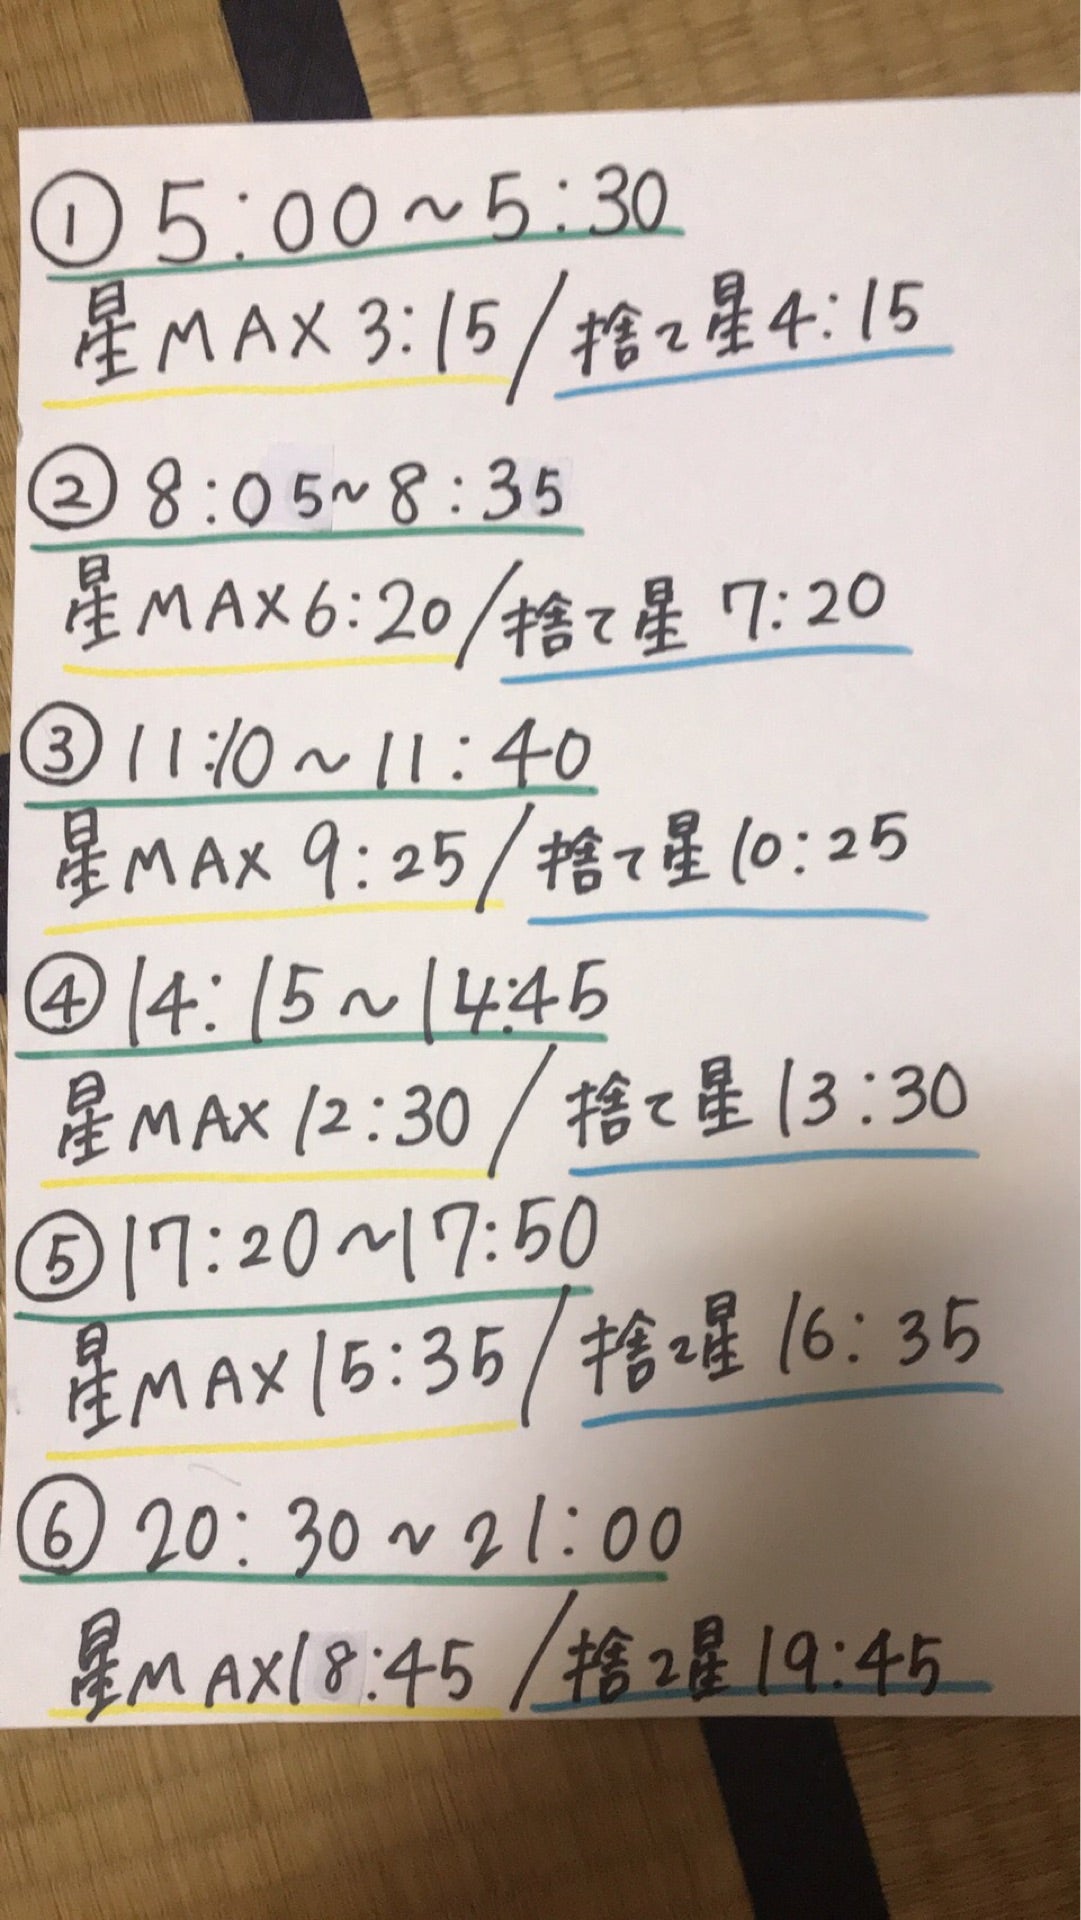 ① 5:00～5:30
星MAX 3:15/捨て星4:15
② 8:05～8:35
星MAX6:20/捨て星 7:20
③ 11:10～11:40
星MAX 9:25/捨て星10:25
④ 14:15～14:45
星MAX 12:30/捨て星13:30
⑤ 17:20～17:50
星MAX15:35/捨て星 16:35
⑥ 20:30～21:00
星MAX18:45/捨て星19:45